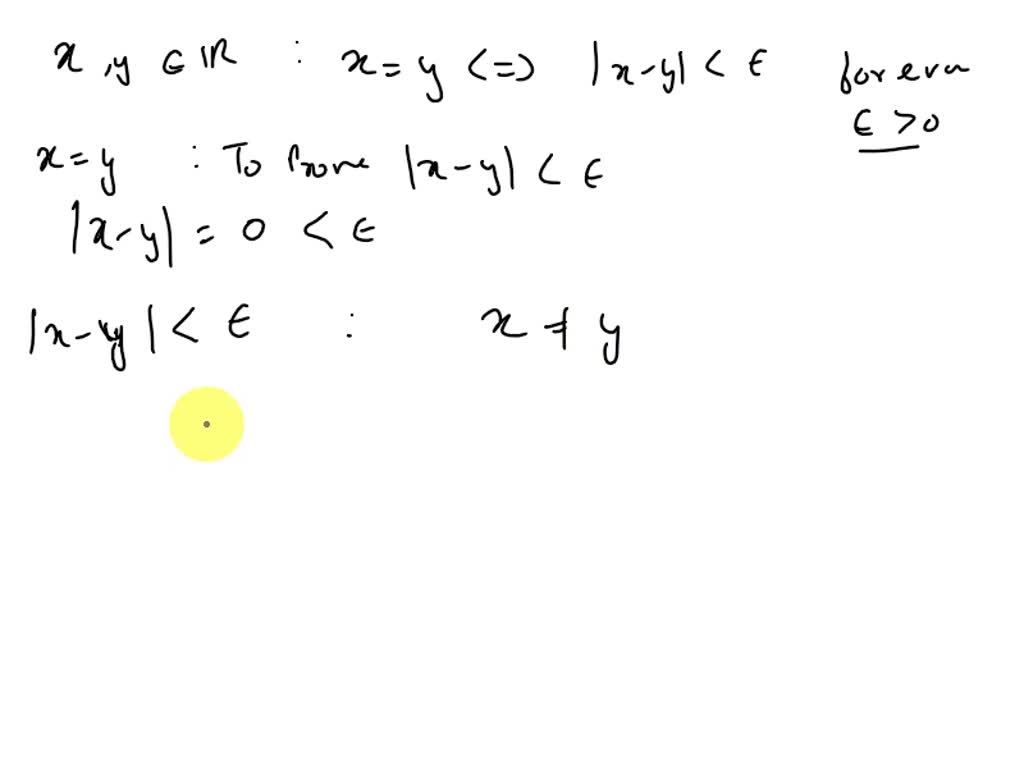 x, y ∈ ℝ : x = y <=> |x-y| < ϵ for every
ϵ > 0
x = y : To Prove |x-y| < ϵ
|x-y| = 0 < ϵ
|x-y| < ϵ : x ≠ y